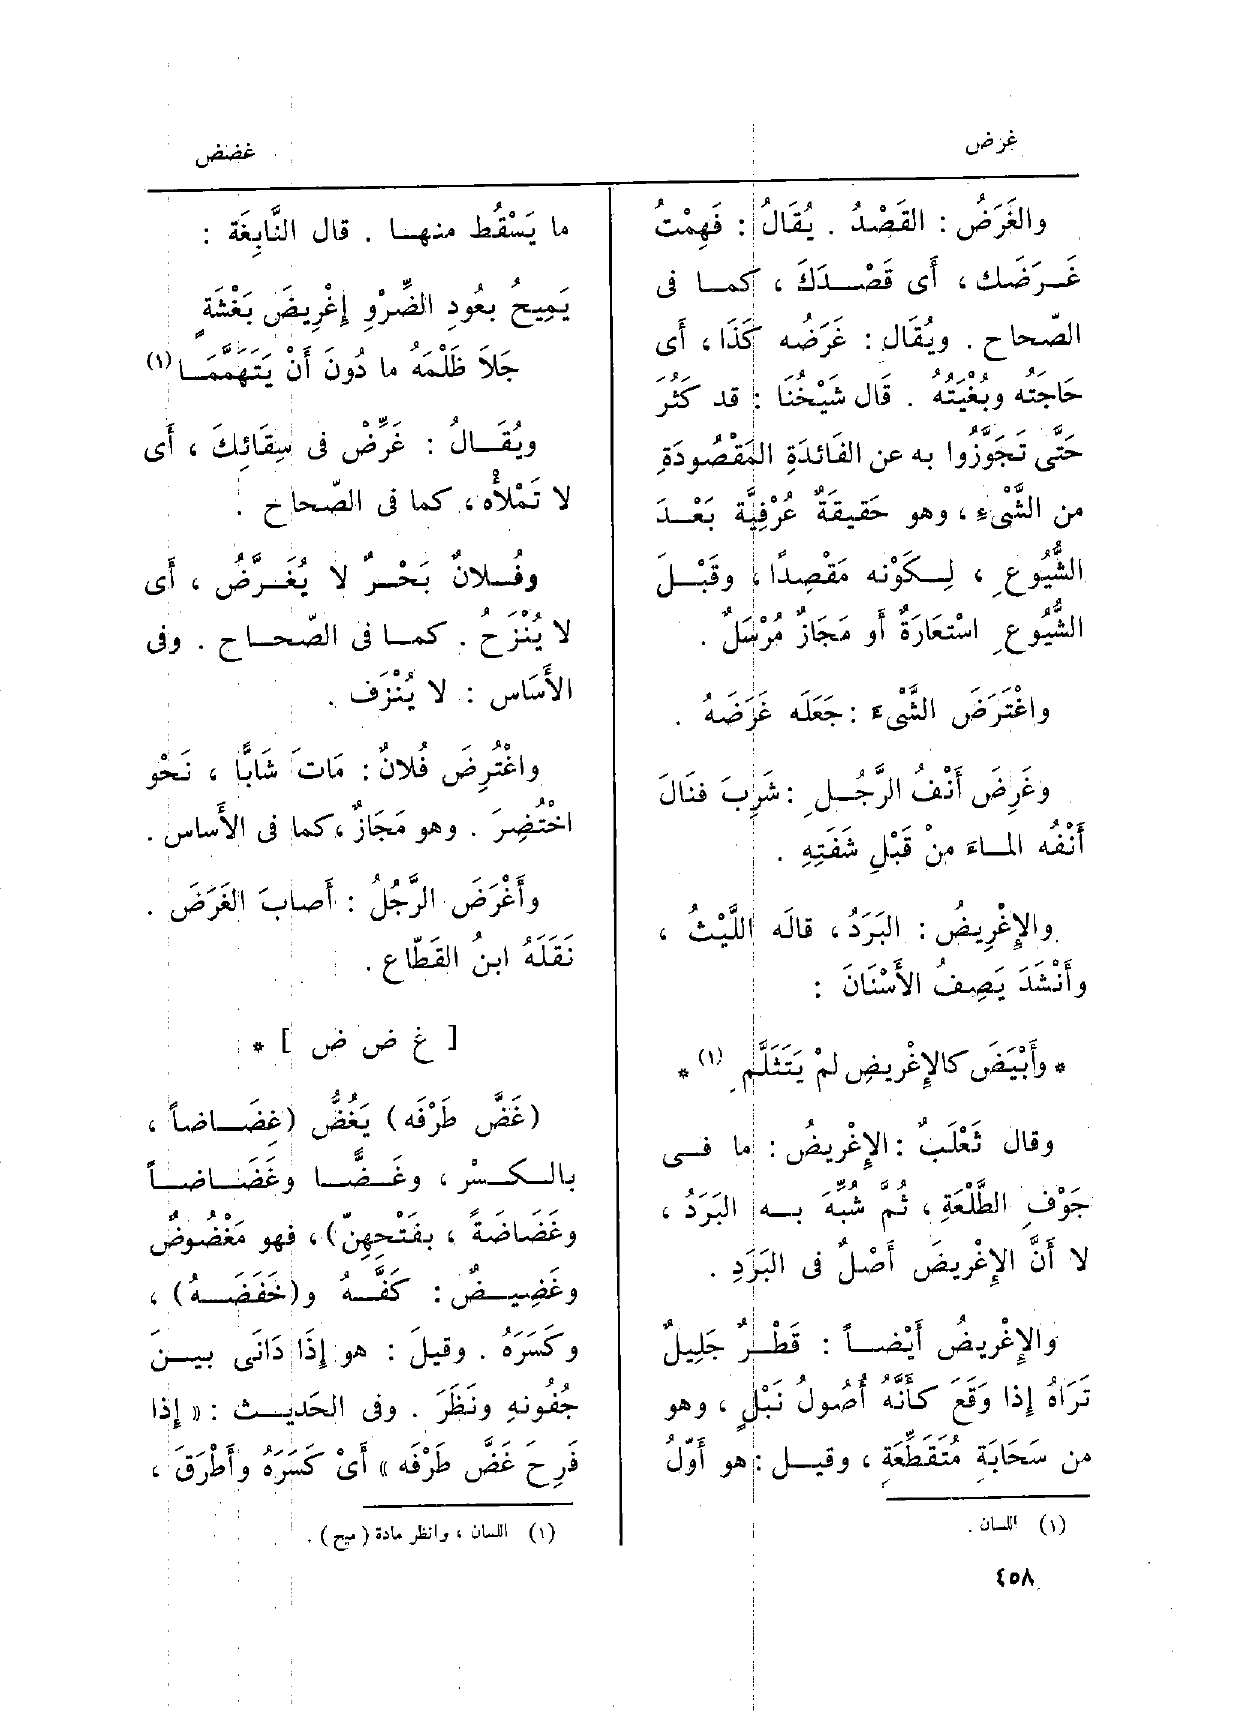 غرض
غضض
والغَرَضُ : القَصْدُ . يُقَالُ : فَهِمْتُ
غَرَضَك ، أَى قَصْدَكَ ، كما فى
الصّحاح . ويُقَال : غَرَضُه كَذَا ، أَى
حَاجَتُه وبُغْيَتُهُ . قَال شَيْخُنَا : قد كَثُرَ
حَتَّى تَجَوَّزُوا به عن الفَائدَةِ المَقْصُودَةِ
من الشَّىْءِ ، وهو حَقيقَةٌ عُرْفِيَّة بَعْدَ
الشُّيُوعِ ، لِكَوْنه مَقْصِدًا ، وقَبْلَ
الشُّيُوعِ اسْتعَارَةٌ أَو مَجَازٌ مُرْسَلٌ .
واغْتَرَضَ الشَّىْءَ : جَعَلَه غَرَضَهُ .
وغَرِضَ أَنْفُ الرَّجُلِ : شَرِبَ فنَالَ
أَنْفُه الماءَ منْ قَبْلِ شَفَتِهِ .
والإِغْرِيضُ : البَرَدُ ، قالَه اللَّيْثُ ،
وأَنْشَدَ يَصِفُ الأَسْنَانَ :
* وأَبْيَضَ كالإِغْرِيضِ لمْ يَتَثَلَّمِ (١) *
وقال ثَعْلَبٌ : الإِغْرِيضُ : ما فى
جَوْفِ الطَّلْعَةِ ، ثُمَّ شُبِّهَ به البَرَدُ ،
لا أَنَّ الإِغْرِيضَ أَصْلٌ فى البَرَدِ .
والإِغْرِيضُ أَيْضاً : قَطْرٌ جَلِيلٌ
تَرَاهُ إِذا وَقَعَ كَأَنَّهُ أُصُولُ نَبْلٍ ، وهو
من سَحَابَةٍ مُتَقَطِّعَةٍ ، وقيل : هو أَوّلُ
(١) اللسان .
٤٥٨
ما يَسْقُط منها . قال النَّابِغَة :
يَمِيحُ بعُودِ الضِّرْوِ إِغْرِيضَ بَغْشَةٍ
جَلاَ ظَلْمَهُ ما دُونَ أَنْ يَتَهَمَّمَا (١)
ويُقَالُ : غَرِّضْ فى سِقَائكَ ، أَى
لا تَمْلأْه ، كما فى الصّحاح .
وفُلانٌ بَحْرٌ لا يُغَرَّضُ ، أَى
لا يُنْزَحُ . كما فى الصّحاح . وفى
الأَسَاس : لا يُنْزَف .
واغْتُرِضَ فُلانٌ : مَاتَ شَابًّا ، نَحْو
اخْتُضِرَ . وهو مَجَازٌ ، كما فى الأَساس .
وأَغْرَضَ الرَّجُلُ : أَصابَ الغَرَضَ .
نَقَلَهُ ابنُ القَطّاع .
[ غ ض ض ] *
(غَضَّ طَرْفَه) يَغُضُّ (غِضَاضاً ،
بالكسْر ، وغَضًّا وغَضَاضاً
وغَضَاضَةً ، بفَتْحِهِنّ) ، فهو مَغْضُوضٌ
وغَضِيضٌ : كَفَّهُ و(خَفَضَهُ) ،
وكَسَرَهُ . وقيلَ : هو إِذَا دَانَى بينَ
جُفُونهِ ونَظَرَ . وفى الحَديث : « إِذا
فَرِحَ غَضَّ طَرْفَه » أَىْ كَسَرَهُ وأَطْرَقَ ،
(١) اللسان ، وانظر مادة (ميح) .